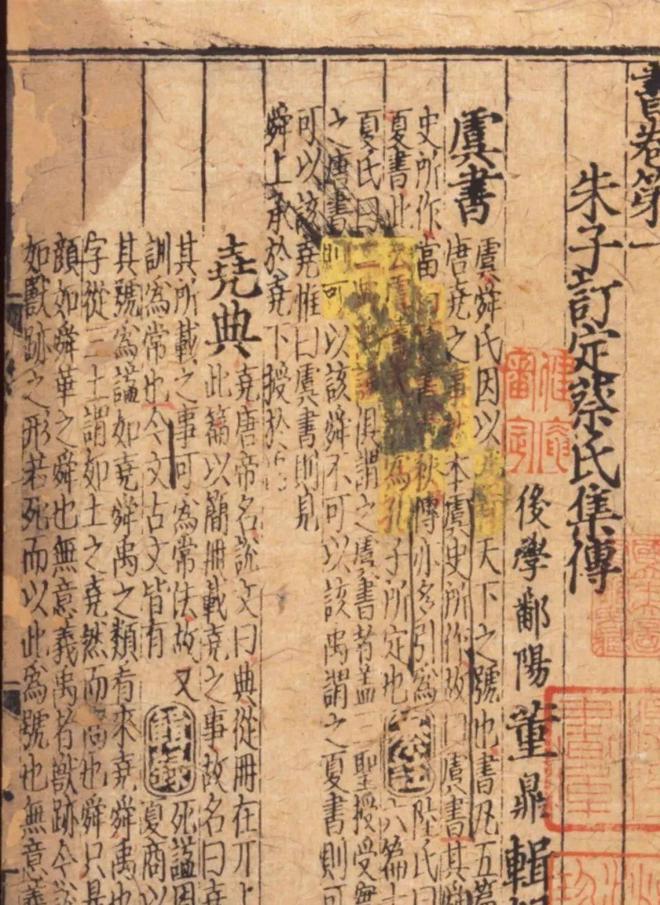 書卷第一
朱子訂定蔡氏集傳
後學鄱陽董鼎輯
虞書
虞舜氏因以為有天下之號也書凡五篇
唐堯之事本虞史所作故曰虞書其舜
史所作當曰夏書春秋傳亦多引爲 陸氏曰
夏書此云虞書為孔子所定也 六篇十
夏氏曰二典俱謂之虞書者蓋三聖授受
之唐書則可以該舜不可以該禹謂之夏書則可
可以該堯惟曰虞書則見
舜上承於堯下授於
堯典
堯唐帝名說文曰典從冊在丌上
此篇以簡冊載堯之事故名曰堯
其所載之事可為常法故又 死謚周
訓為常也今文古文皆有 夏商以
其號爲謚如堯舜禹之類看來堯舜禹也
字從三土謂如土之堯然而高也舜只是
顔如舜華之舜也無意義禹者獸跡今說
如獸跡之形若死而以此爲號也無意義